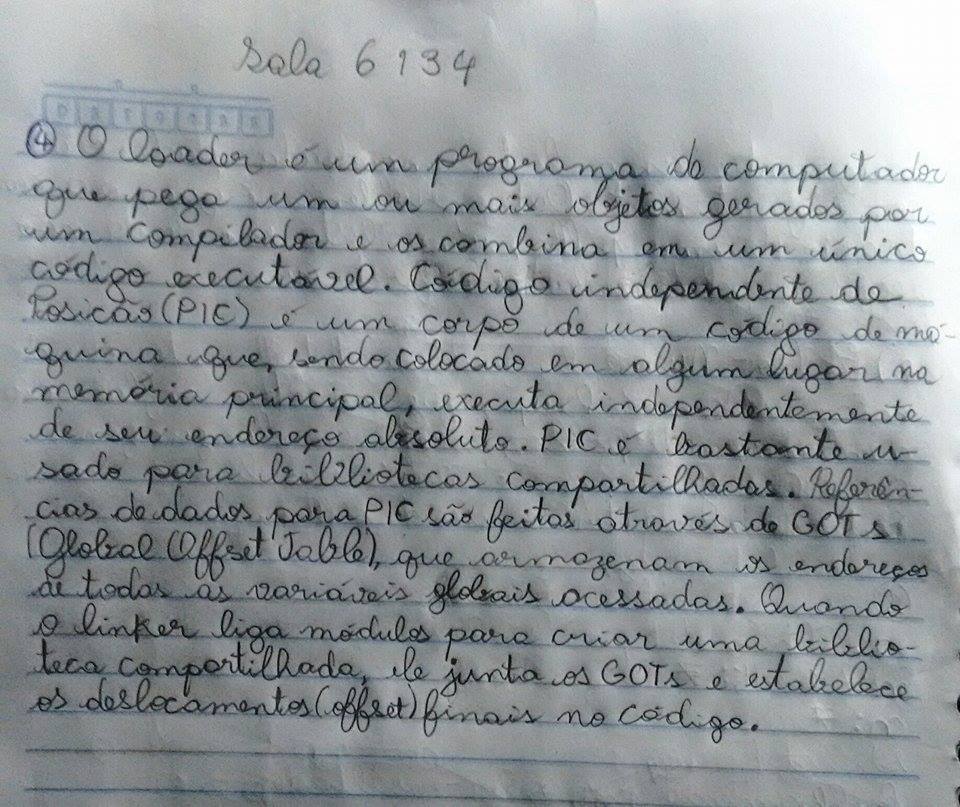 Sala 6134
④ O loader é um programa de computador
que pega um ou mais objetos gerados por
um compilador e os combina em um único
código executável. Código independente de
Posicão (PIC) é um corpo de um código de má-
quina que, sendo colocado em algum lugar na
memória principal, executa independentemente
de seu endereço absoluto. PIC é bastante u-
sado para bibliotecas compartilhadas. Referên-
cias de dados para PIC são feitas através de GOTs
(Global Offset Table), que armazenam os endereços
de todas as variáveis globais acessadas. Quando
o linker liga módulos para criar uma biblio-
teca compartilhada, ele junta os GOTs e estabelece
os deslocamentos (offset) finais no código.